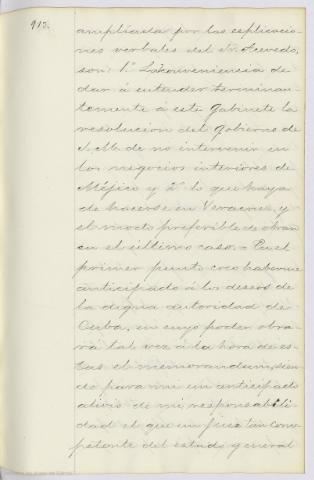 913.
ampliada por las esplicacio-
nes verbales del Sr. Acevedo,
son: 1º La conveniencia de
dar á entender terminan-
temente á este Gabinete la
resolucion del Gobierno de
S. M. de no intervenir en
los negocios interiores de
Méjico y 2º lo que haya
de hacerse en Veracruz, y
el modo preferible de obrar
en el último caso. - En el
primer punto creo haberme
anticipado á los deseos de
la digna autoridad de
Cuba, en cuyo poder obra-
rá tal vez á la hora de es-
tas el memorandum, sien-
do para mi un anticipado
alivio de mi responsabili-
dad el que un juez tan com-
petente del estado general